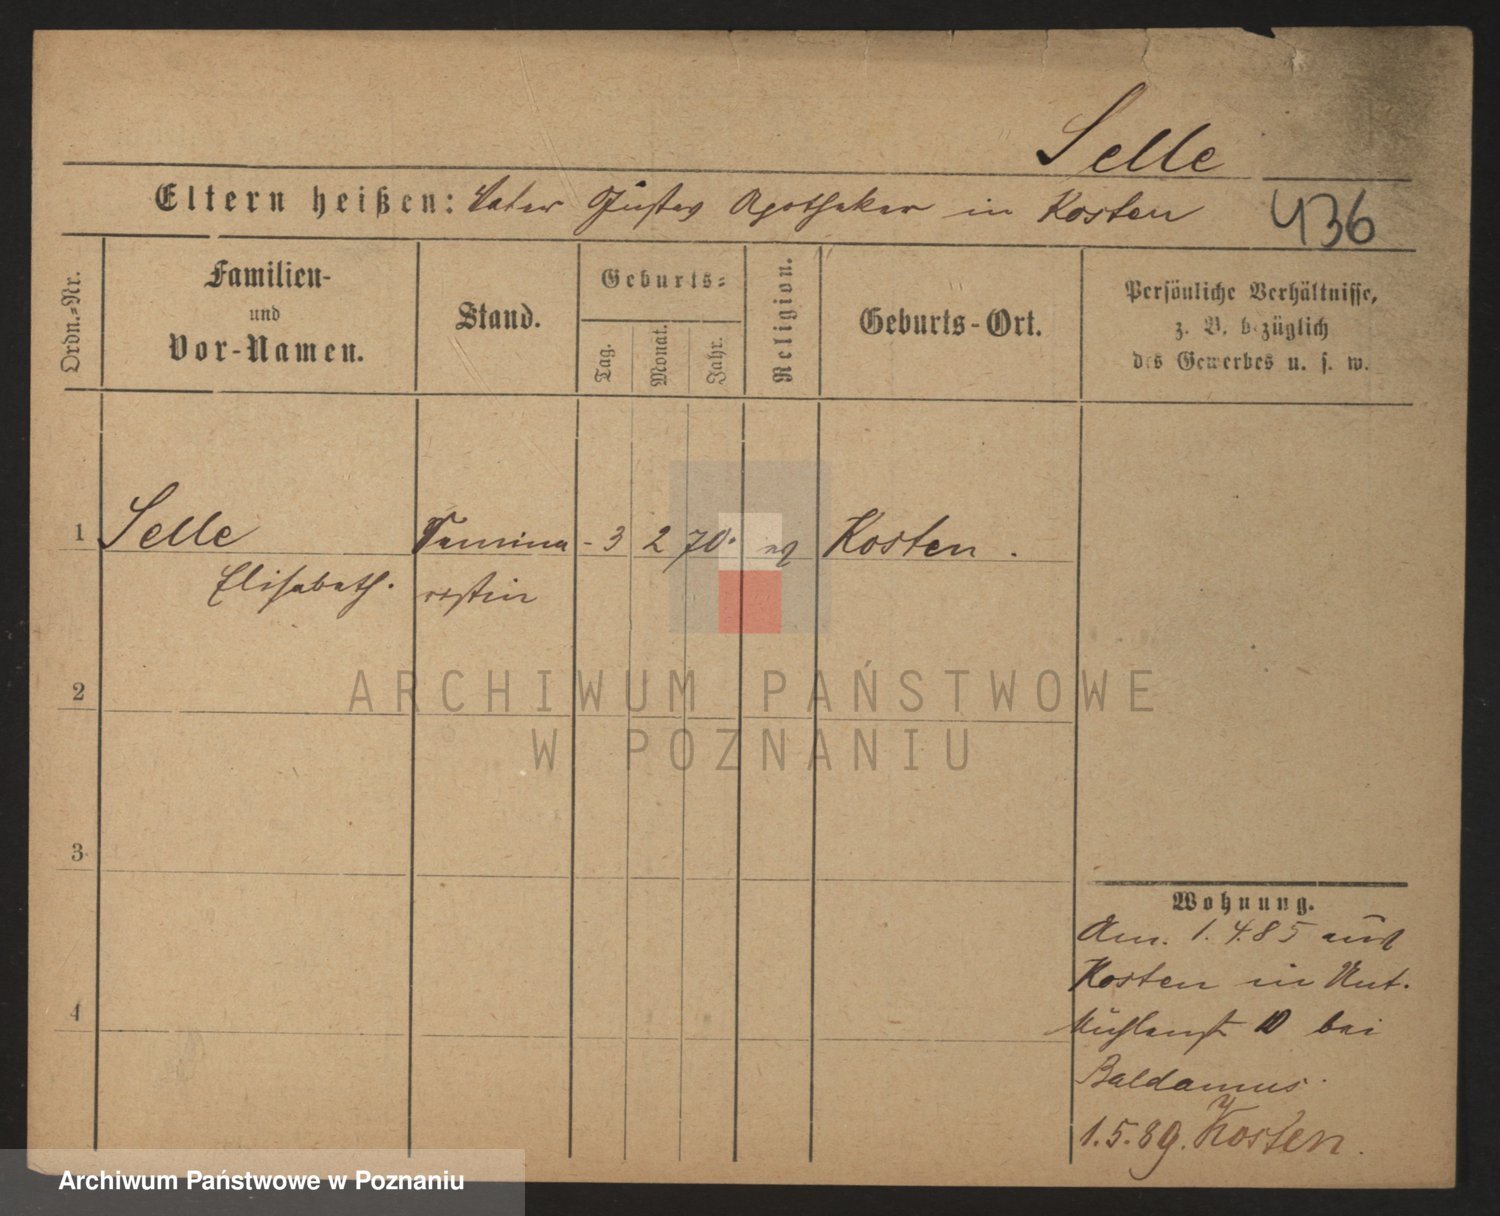 Selle
Eltern heißen: Vater Gustav Apotheker in Kosten
436
Ordn.-Nr.
Familien-
und
Vor-Namen.
Stand.
Geburts-
Tag.
Monat.
Jahr.
Religion.
Geburts-Ort.
Persönliche Verhältnisse,
z. B. bezüglich
des Gewerbes u. s. w.
1 Selle Semina- 3 2 70. ev Kosten.
Elisabeth. ristin
2
3
4
Wohnung.
Am. 1. 4. 85 aus
Kosten in Unt.
Mühlenst 10 bei
Baldamus.
1. 5. 89. Kosten.
ARCHIWUM PAŃSTWOWE
W POZNANIU
Archiwum Państwowe w Poznaniu